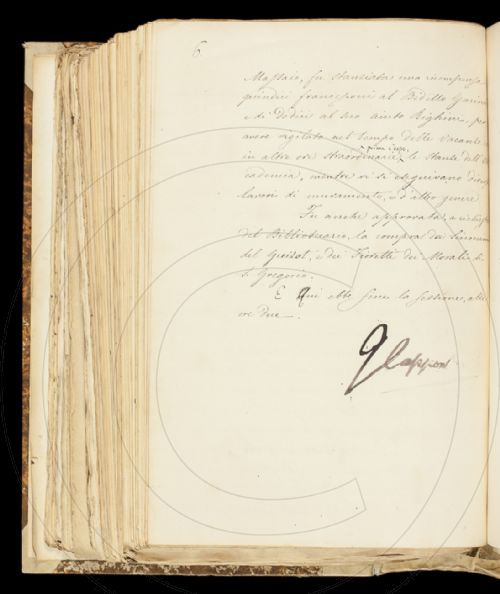 6.
Massaio, fu stanziata una ricompensa
quindici francesconi al Bidello
e di dodici al suo aiuto Righini, per
avere agitato nel tempo delle vacanze
prima e dopo,
in altre ore straordinarie, le stanze dell'
cademia, mentre vi si eseguivano diversi
lavori di muramento, e d'altro genere.
Fu anche approvata, a
del Bibliotecario, la compra dei
del Guizot, e dei Fioretti dei Morali di
S. Gregorio.
E Qui ebbe fine la sessione, alle
ore due.